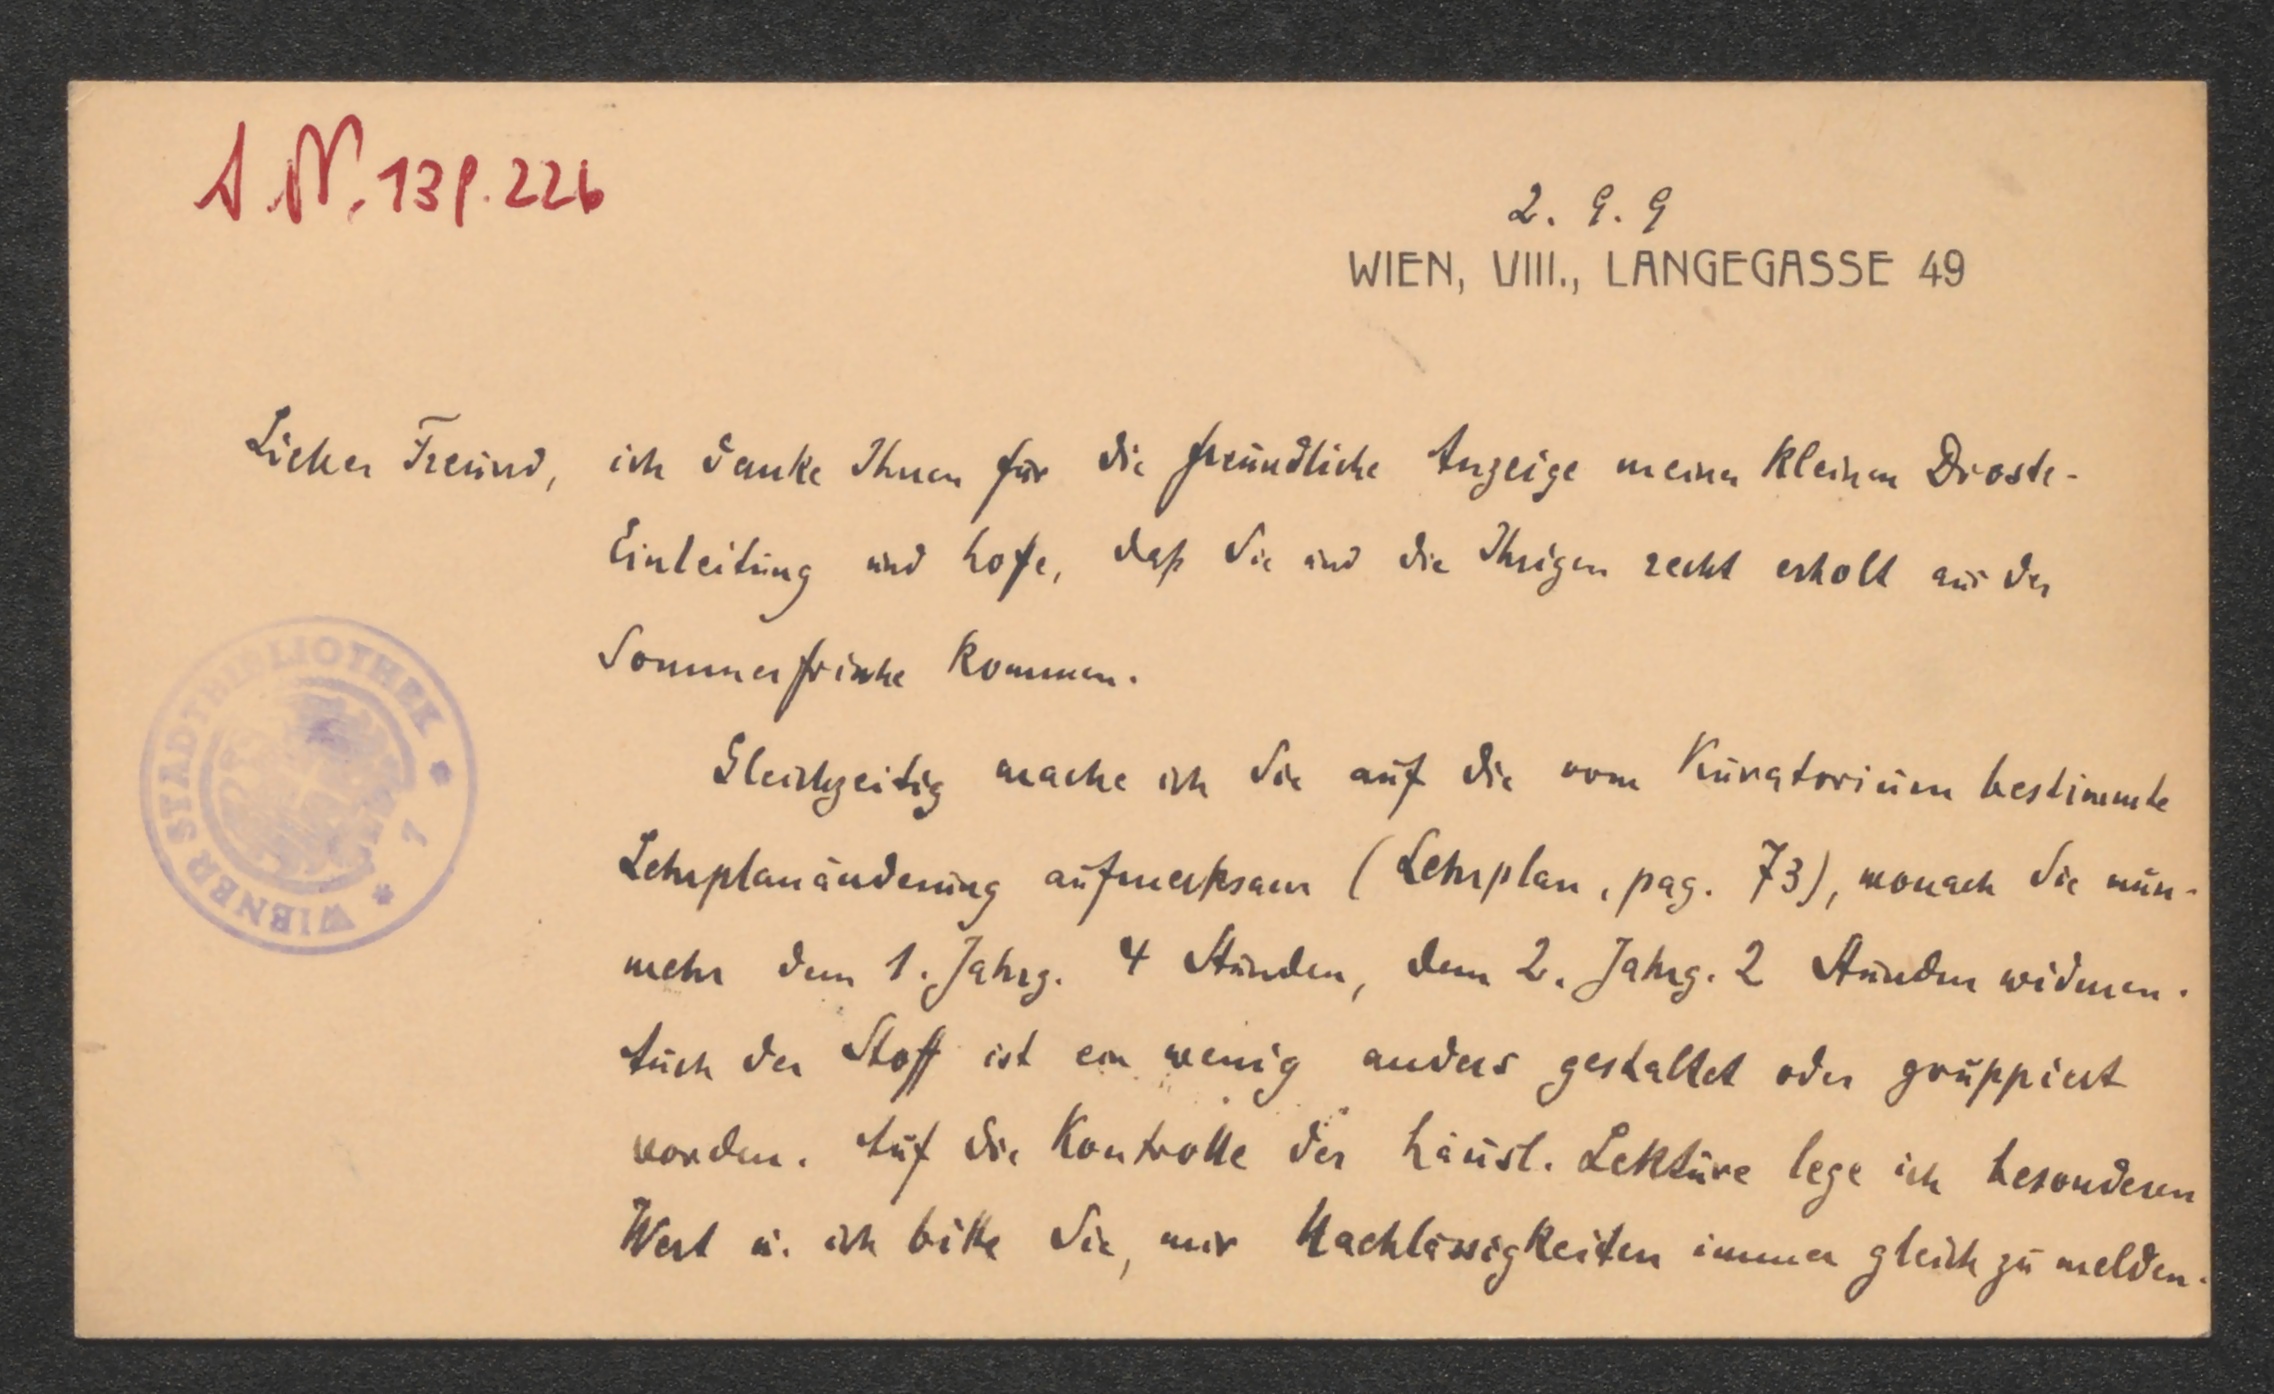 I.N. 139.226
2. 9. 9
WIEN, VIII., LANGEGASSE 49
Lieber Freund, ich danke Ihnen für die freundliche Anzeige meiner kleinen Droste-
Einleitung und hoffe, daß Sie und die Ihrigen recht erholt aus der
Sommerfrische kommen.
Gleichzeitig mache ich Sie auf die vom Kuratorium bestimmte
Lehrplanänderung aufmerksam (Lehrplan, pag. 73), wonach Sie nun-
mehr dem 1. Jahrg. 4 Stunden, dem 2. Jahrg. 2 Stunden widmen.
Auch der Stoff ist ein wenig anders gestaltet oder gruppiert
worden. Auf die Kontrolle der häusl. Lektüre lege ich besonderen
Wert u. ich bitte Sie, mir Nachlässigkeiten immer gleich zu melden.
WIENER STADTBIBLIOTHEK * 7 *